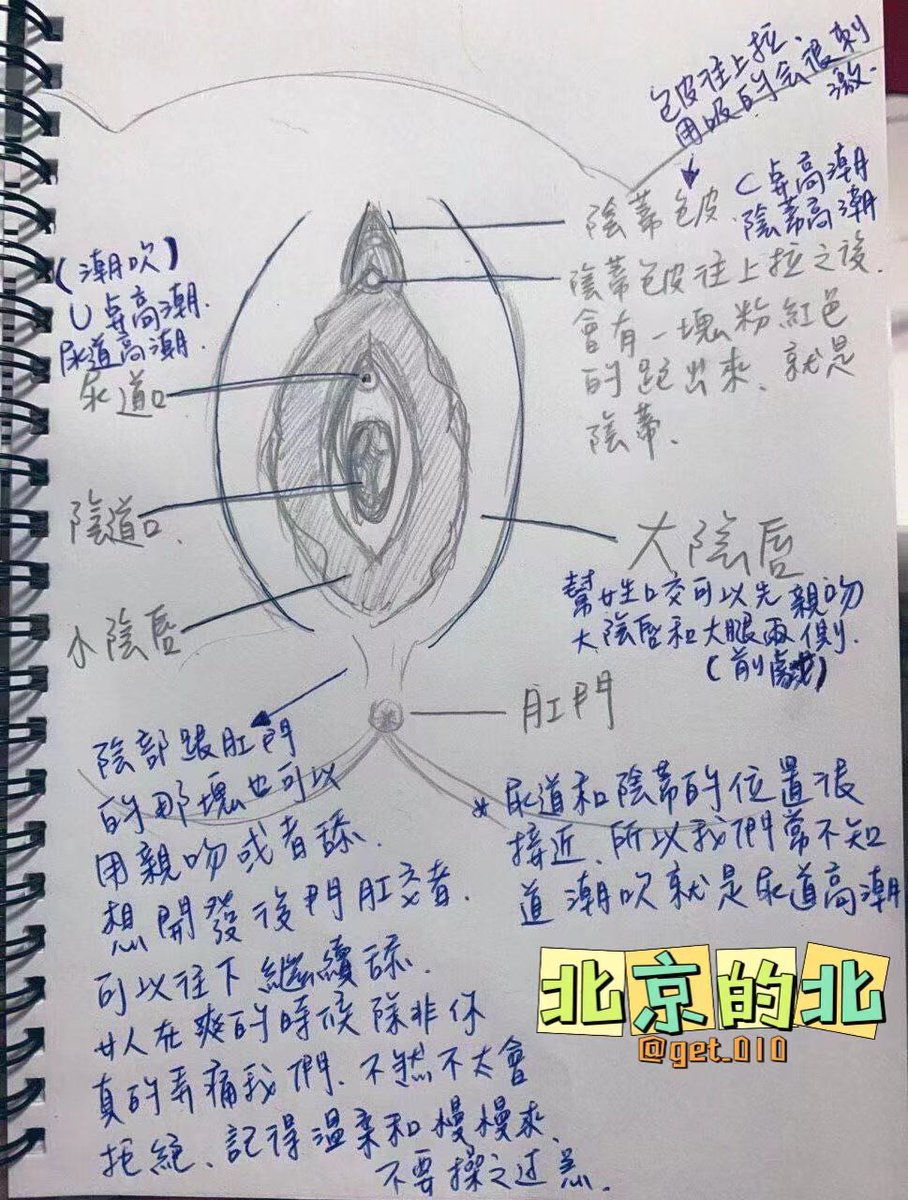 包皮往上拉、
用吸的會很刺
激.
陰蒂包皮.
C点高潮
陰蒂高潮
(潮吹)
U点高潮.
尿道高潮.
尿道口
陰蒂包皮往上拉之後.
會有一塊粉紅色
的跑出來、就是
陰蒂.
陰道口.
小陰唇
大陰唇
幫女生口交可以先親吻
大陰唇和大腿兩側.
(前戲)
肛門
陰部跟肛門
的那塊也可以
用親吻或者舔.
想開發後門肛交者.
可以往下繼續舔.
女人在爽的時候除非你
真的弄痛我們、不然不太會
拒絕、記得溫柔和慢慢來、
不要操之过急.
*尿道和陰蒂的位置很
接近、所以我們常不知
道潮吹就是尿道高潮
北京的北
@get_010